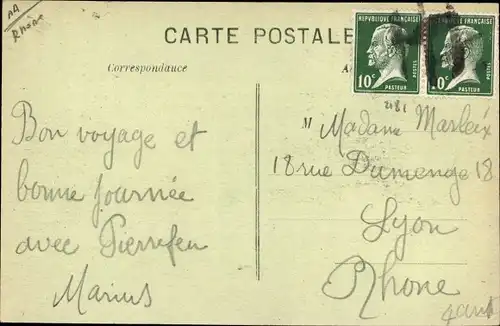 AA
Rhone
CARTE POSTALE
RÉPUBLIQUE FRANÇAISE
10c
POSTES
PASTEUR
FRANÇAISE
0c
POSTES
PASTEUR
Correspondance
A
2181
Bon voyage et
bonne journée
avec Pierrefeu
Marius
M Madame Marleix
18 rue Dumenge 18
Lyon
Rhone